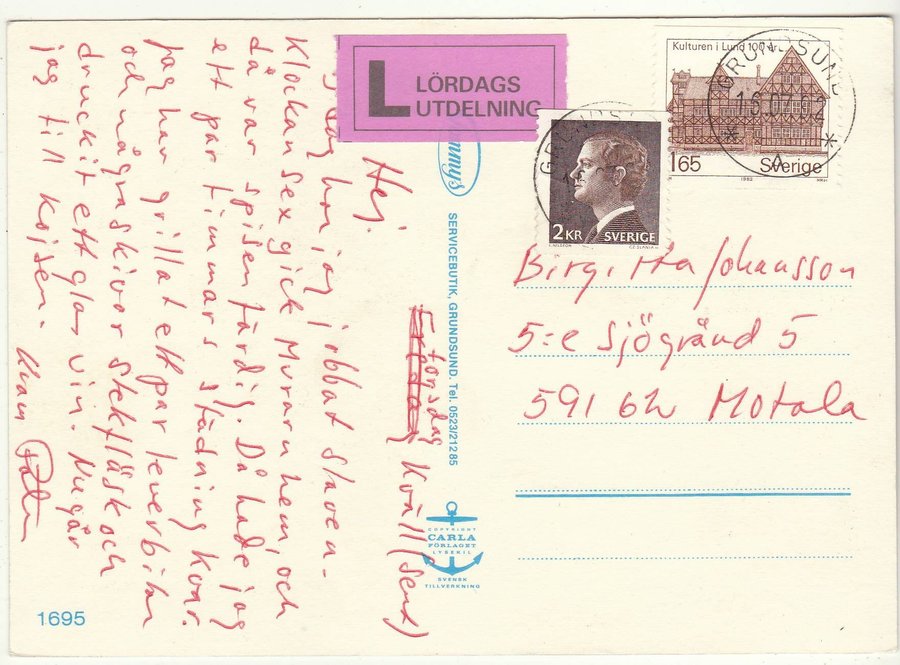 LÖRDAGS
UTDELNING
L
Kulturen i Lund 100 år
GRUNDSUND
16.07.82
A
165 Sverige
1982
2 KR SVERIGE
GRUNDS
mmys
SERVICEBUTIK, GRUNDSUND. Tel. 0523/212 85
COPYRIGHT
CARLA
FÖRLAGET
LYSEKIL
SVENSK
TILLVERKNING
1695
Birgitta Johansson
5:e Sjögränd 5
591 62 Motala
torsdag kväll (sent)
Hej.
har jag jobbat slaven-
Klockan sex gick Muraren hem, och
då var spisen färdig. Då hade jag
ett par timmars städning kvar.
Jag har grillat ett par leverbitar
och några skivor stekfläsk och
druckit ett glas vin. Nu går
jag till kojsen.